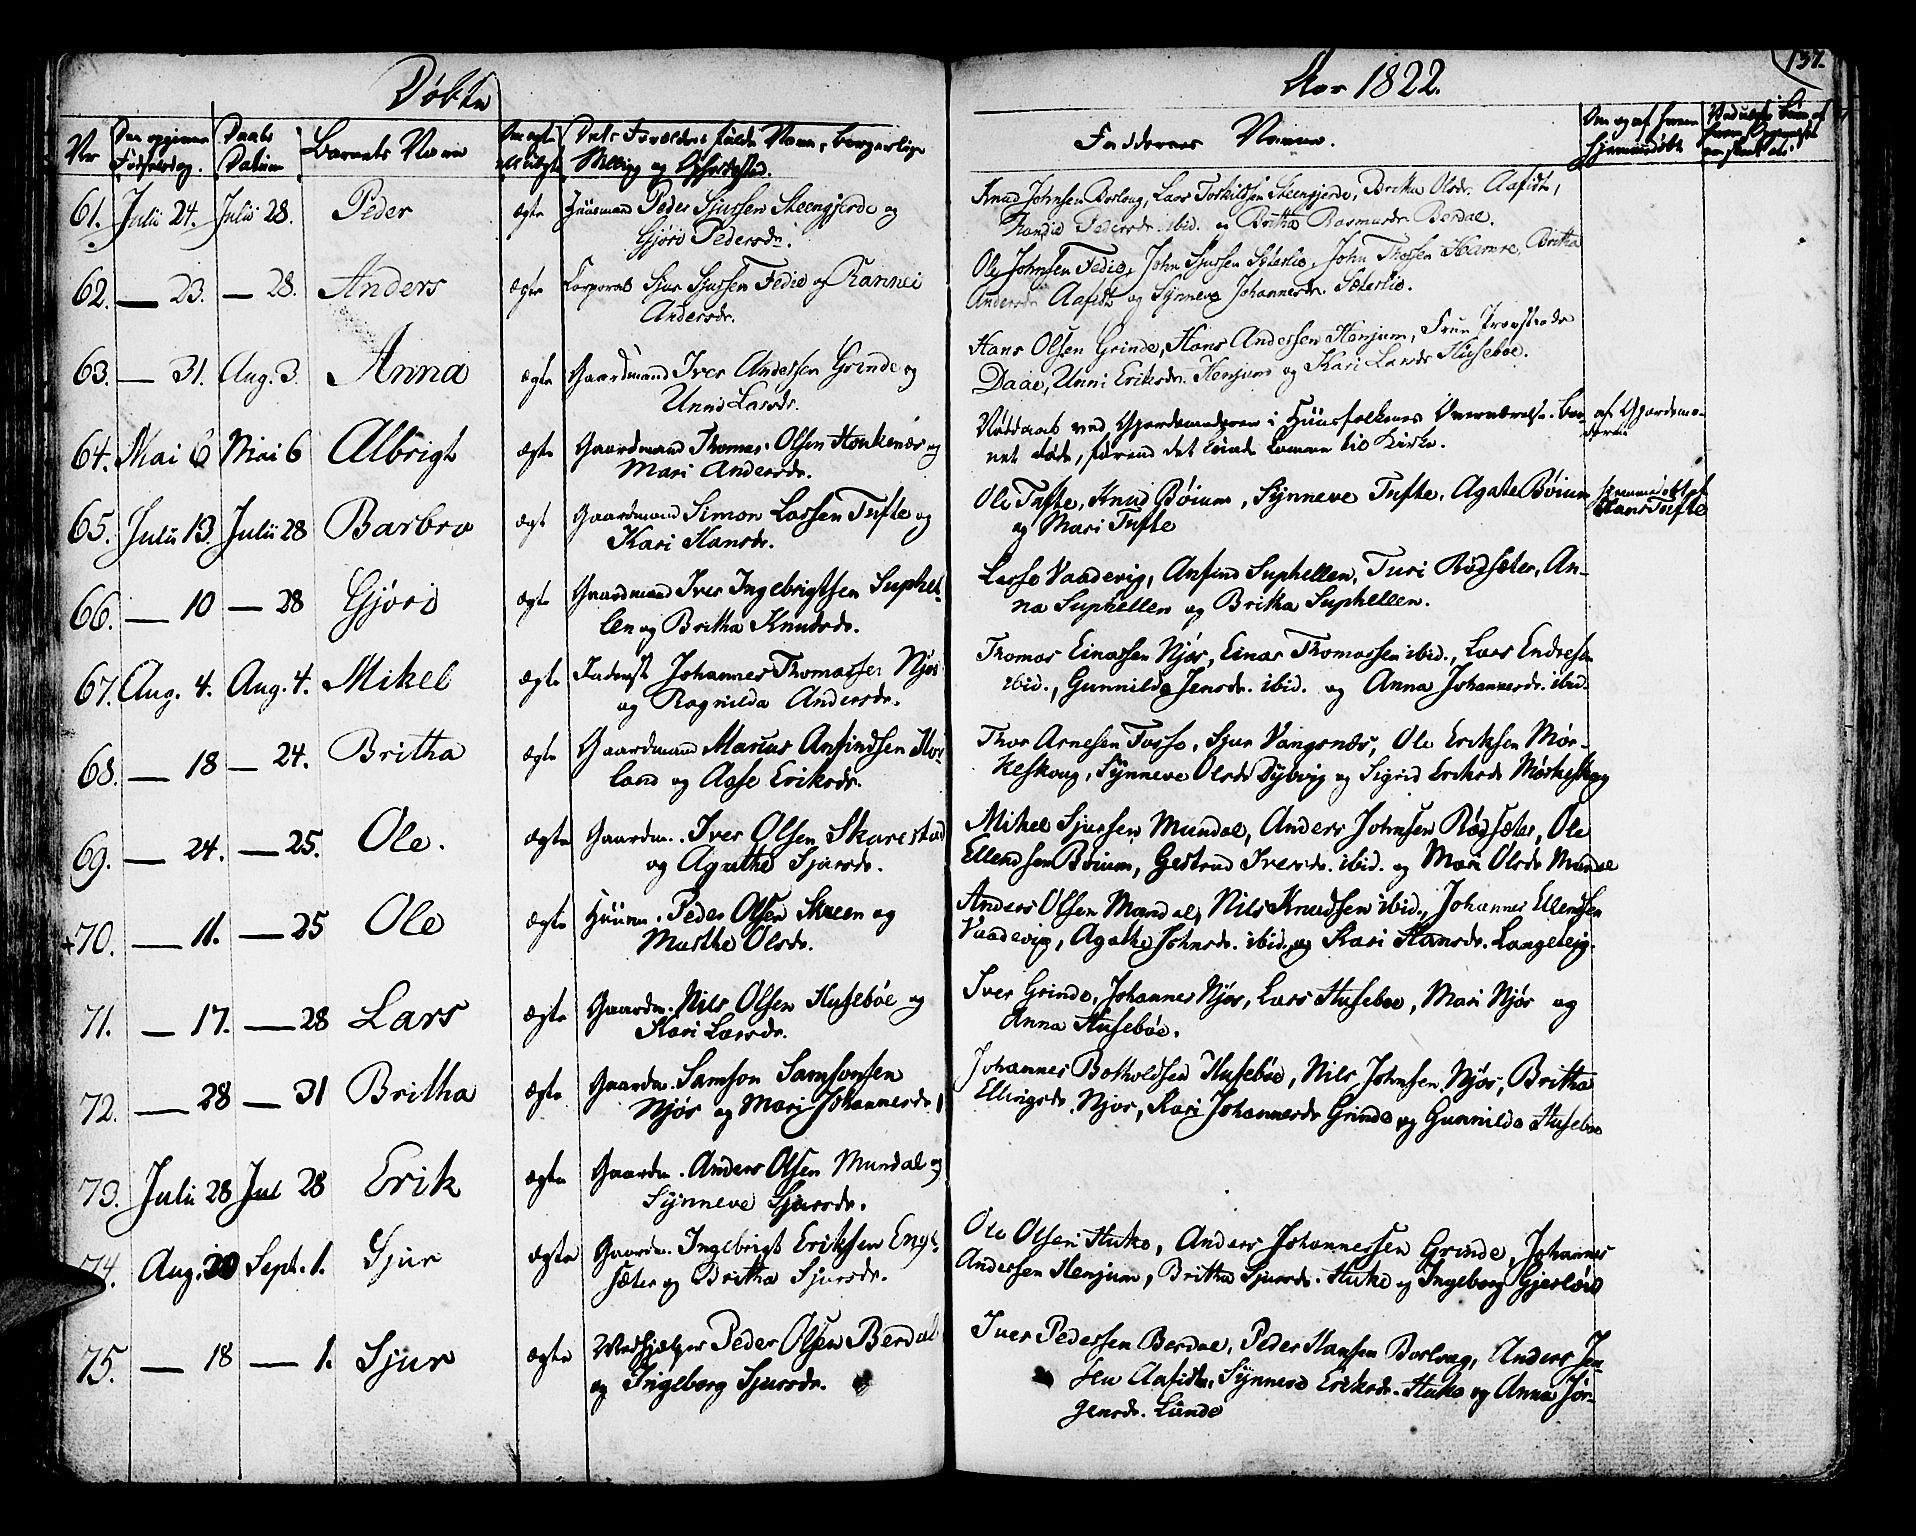 Døbte
Aar 1822.
137.
Nr
Barnets Navn
Faddernes Navne.
61. Julii 24. Julii 28. Peder ægte Huusmand Peder Sjursen Steengjerde og
Gjøri Pedersdr.
Knud Johnsen Borlaug, Lars Torkildsen Steengjerde, Britha Olsdr. Aafedt,
Randid Pedersdr. ibid. og Britha Rasmusdr. Berdal.
62. — 23. — 28. Anders ægte Corporal Sjur Sjursen Fedie og Rannei
Andersdr.
Ole Johnsen Fedie, John Sjursen Sæterlie, John Thosen Hamre, Britha
Andersdr. Aafedt og Synneve Johannesdr. Sæterlie.
63. — 31. Aug. 3. Anna ægte Gaardmand Iver Andersen Grinde og
Unni Larsdr.
Hans Olsen Grinde, Hans Andersen Henjum, Frue Provstinde
Daae, Unni Eriksdr. Henjum og Kari Larsdr. Husebøe.
64. Mai 6 Mai 6 Albrigt ægte Gaardmand Thomas Olsen Honkenæs og
Mari Andersdr.
Nøddaab ved Gjordemoderen i Huusfolkenes Overværelse. Bar-
net døde, førend det kunde komme til Kirke.
af Gjordemo-
deren
65. Julii 13. Julii 28 Barbro ægt Gaardmand Simon Larsen Tufte og
Kari Hansdr.
Ole Tufte, Knud Bøium, Synneve Tufte, Agate Bøium
og Mari Tufte
hjemmedøbt af
Hans Tufte
66. — 10 — 28 Gjøri ægte Gaardmand Iver Ingebrigtsen Suphel-
len og Britha Knudsdr.
Lasse Vaadevig, Anfind Suphellen, Turi Rødsæter, An-
na Suphellen og Britha Suphellen.
67. Aug. 4. Aug. 4. Mikel ægte Johannes Thomassen Njøs
og Ragnilda Andersdr.
Thomas Einarsen Njøs, Einar Thomassen ibid., Lars Endresen
ibid., Gunnilde Jensdr. ibid. og Anna Johannesdr. ibid.
68. — 18 — 24. Britha ægte Gaardmand Marcus Anfindsen Hov-
land og Aase Eriksdr.
Thor Arnesen Tosse, Sjur Vangsnæs, Ole Eriksen Mør-
keskoug, Synneve Olsdr Dybvig og Sigrid Eriksdr Mørkeskoug
69. — 24. — 25. Ole. ægte Gaardm. Iver Olsen Skarestad
og Agathe Sjursdr.
Mikel Sjursen Mundal, Anders Johnsen Rødsæter, Ole
Ellendsen Bøium, Gertrud Iversdr. ibid. og Mari Olsdr Mundal
+70. — 11. — 25 Ole ægte Huusm. Peder Olsen Skreen og
Marthe Olsdr.
Anders Olsen Mundal, Nils Knudsen ibid., Johannes Ellensen
Vaadevig, Agathe Johnsdr. ibid. og Kari Hansdr. Langeteig.
71. — 17. — 28 Lars ægte Gaardm. Nils Olsen Husebøe og
Kari Larsdr.
Iver Grinde, Johannes Njøs, Lars Husebøe, Mari Njøs og
Anna Husebøe.
72. — 28 — 31 Britha ægte Gaardm. Samson Samsonsen
Njøs og Mari Johannesdr.
Johannes Botholdsen Husebøe, Nils Johnsen Njøs, Britha
Ellingsdr. Njøs, Kari Johannesdr Grinde og Gunnilde Husebøe
73. Julii 28 Jul 28 Erik ægte Gaardm. Anders Olsen Mundal og
Synneve Sjursdr.
74. Aug. 20 Sept. 1. Sjur ægte Gaardm. Ingebrigt Eriksen Enge-
sæter og Britha Sjursdr.
Ole Olsen Huke, Anders Johannessen Grinde, Johannes
Andersen Henjum, Britha Sjursdr. Huke og Ingeborg Gjesløed
75. — 18 — 1. Sjur ægte Medhjælper Peder Olsen Berdal
og Ingeborg Sjursdr.
Iver Pedersen Berdal, Peder Hansen Borloug, Anders Jen-
sen Aafedt, Synneve Eriksdr. Huke og Anna Jør-
gensdr. Lunde